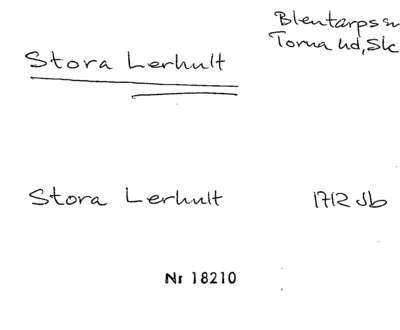 Blentarps sn
Torna hd, Sk
Stora Lerhult
Stora Lerhult 1712 Jb
Nr 18210